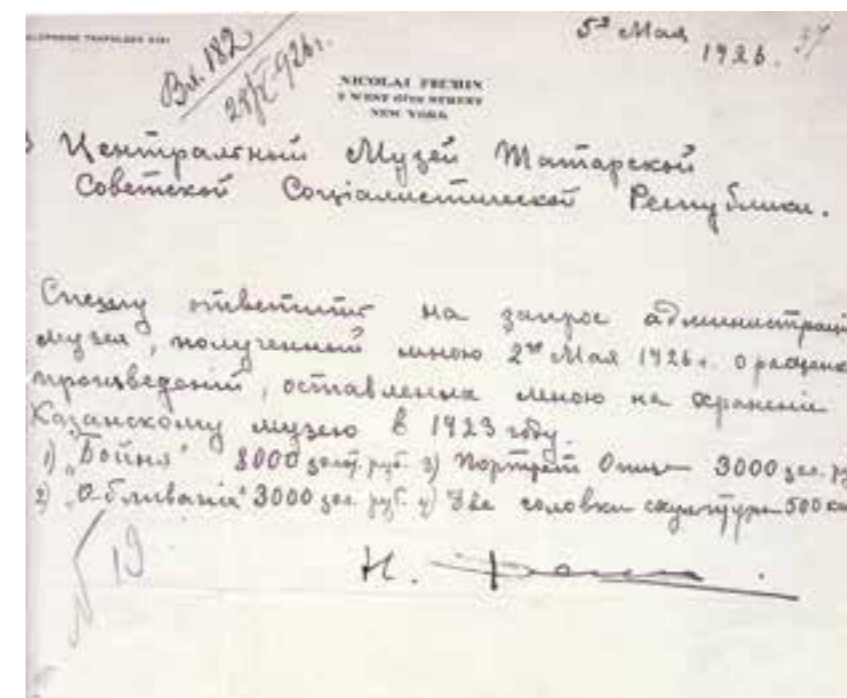 5го Мая
1926. 37
Вх. 182
28/V 926 г.
NICOLAI FECHIN
NEW YORK
Центральный Музей Татарской
Советской Соціалистической Республики.
Спешу ответить на запрос администраціи
музея, полученный мною 2го Мая 1926 г. о расценке
произведеній, оставленных мною на храненіи
Казанскому музею в 1923 году.
1) „Бойня" 8000 золот. руб. 3) Портрет Отца — 3000 зол. ру
2) „Обливаніе" 3000 зол. руб. 4) Две головки скульптуры 500 ка
№ 19
Н. Фешин.